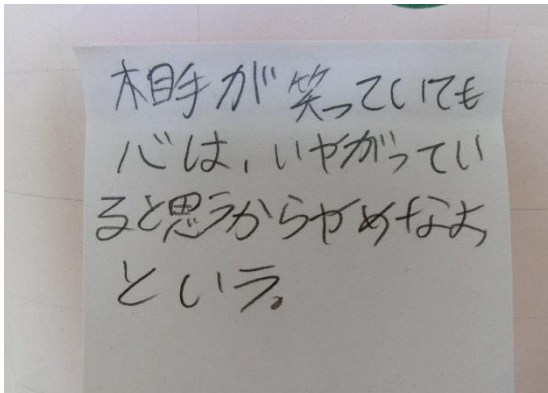 相手が笑っていても
心は、いやがってい
ると思うからやめなよ
という。